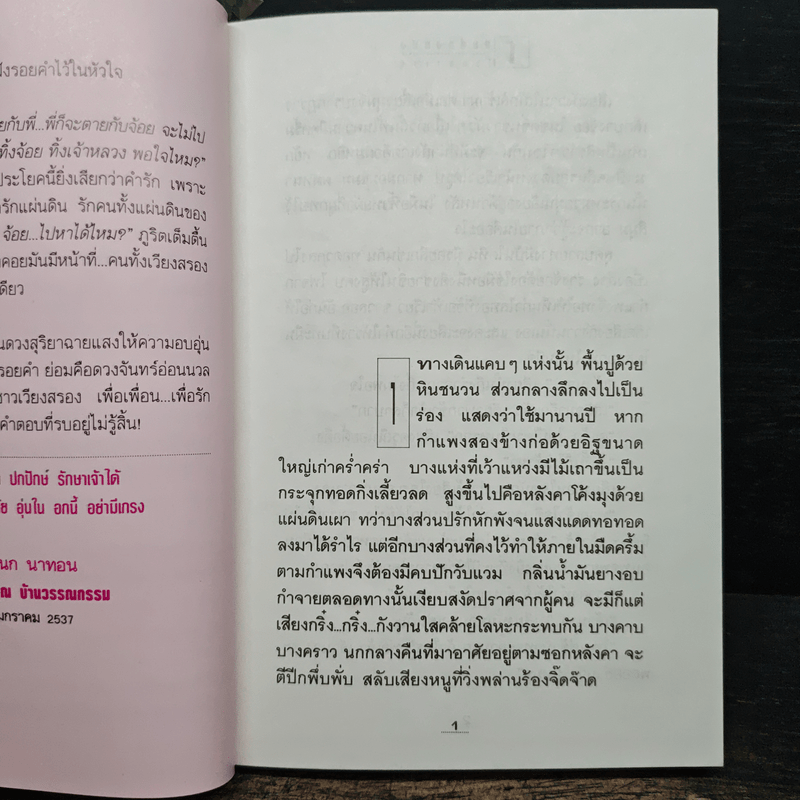 ฝังรอยคำไว้ในหัวใจ
ยกับพี่...พี่ก็จะตายกับจ้อย จะไม่ไป
ทิ้งจ้อย ทิ้งเจ้าหลวง พอใจไหม?”
ประโยคนี้ยิ่งเสียกว่าคำรัก เพราะ
รักแผ่นดิน รักคนทั้งแผ่นดินของ
จ้อย...ไปหาได้ไหม?” ภูริตเต็มตื้น
คอยมันมีหน้าที่...คนทั้งเวียงสรอง
ดียว
นดวงสุริยาฉายแสงให้ความอบอุ่น
รอยคำ ย่อมคือดวงจันทร์อ่อนนวล
ชาวเวียงสรอง เพื่อเพื่อน...เพื่อรัก
คำตอบที่รบอยู่ไม่รู้สิ้น!
ปกปักษ์ รักษาเจ้าได้
อุ่นใน อกนี้ อย่ามีเกรง
นก นาทอน
ณ บ้านวรรณกรรม
มกราคม 2537
1
ทางเดินแคบๆ แห่งนั้น พื้นปูด้วย
หินชนวน ส่วนกลางลึกลงไปเป็น
ร่อง แสดงว่าใช้มานานปี หาก
กำแพงสองข้างก่อด้วยอิฐขนาด
ใหญ่เก่าคร่ำคร่า บางแห่งที่เว้าแหว่งมีไม้เถาขึ้นเป็น
กระจุกทอดกิ่งเลี้ยวลด สูงขึ้นไปคือหลังคาโค้งมุงด้วย
แผ่นดินเผา ทว่าบางส่วนปรักหักพังจนแสงแดดทอทอด
ลงมาได้รำไร แต่อีกบางส่วนที่คงไว้ทำให้ภายในมืดครึ้ม
ตามกำแพงจึงต้องมีคบปักวับแวม กลิ่นน้ำมันยางอบ
กำจายตลอดทางนั้นเงียบสงัดปราศจากผู้คน จะมีก็แต่
เสียงกริ๋ง...กริ๋ง...กังวานใสคล้ายโลหะกระทบกัน บางคาบ
บางคราว นกกลางคืนที่มาอาศัยอยู่ตามซอกหลังคา จะ
ตีปีกพึ่บพั่บ สลับเสียงหนูที่วิ่งพล่านร้องจี๊ดจ๊าด
1